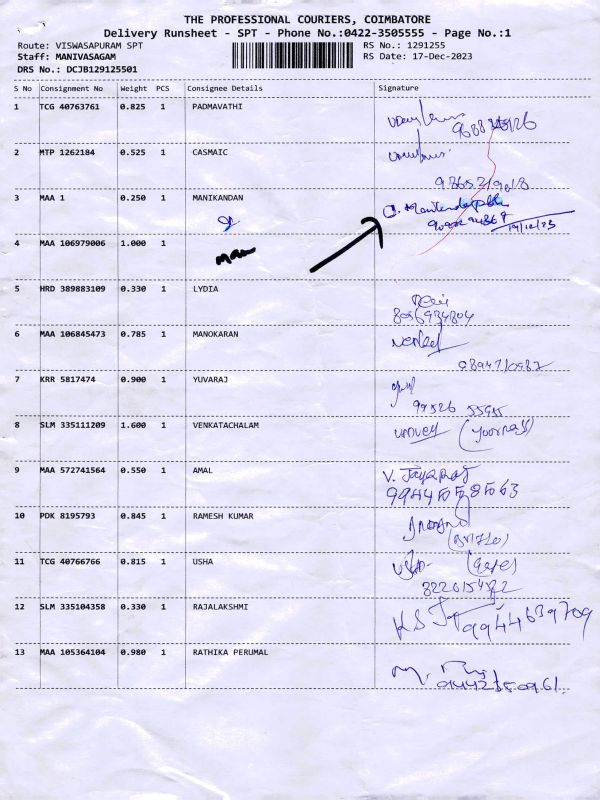 THE PROFESSIONAL COURIERS, COIMBATORE
Delivery Runsheet - SPT - Phone No.:0422-3505555 - Page No.:1
Route: VISWASAPURAM SPT
Staff: MANIVASAGAM
DRS No.: DCJB129125501
RS No.: 1291255
RS Date: 17-Dec-2023
S No Consignment No Weight PCS Consignee Details Signature
1 TCG 40763761 0.825 1 PADMAVATHI
2 MTP 1262184 0.525 1 CASMAIC
3 MAA 1 0.250 1 MANIKANDAN
19/12/23
4 MAA 106979006 1.000 1
5 HRD 389883109 0.330 1 LYDIA
8056934804
6 MAA 106845473 0.785 1 MANOKARAN
7 KRR 5817474 0.900 1 YUVARAJ
99526 55955
8 SLM 335111209 1.600 1 VENKATACHALAM
9 MAA 572741564 0.550 1 AMAL
10 PDK 8195793 0.845 1 RAMESH KUMAR
11 TCG 40766766 0.815 1 USHA
12 SLM 335104358 0.330 1 RAJALAKSHMI
9944639709
13 MAA 105364104 0.980 1 RATHIKA PERUMAL